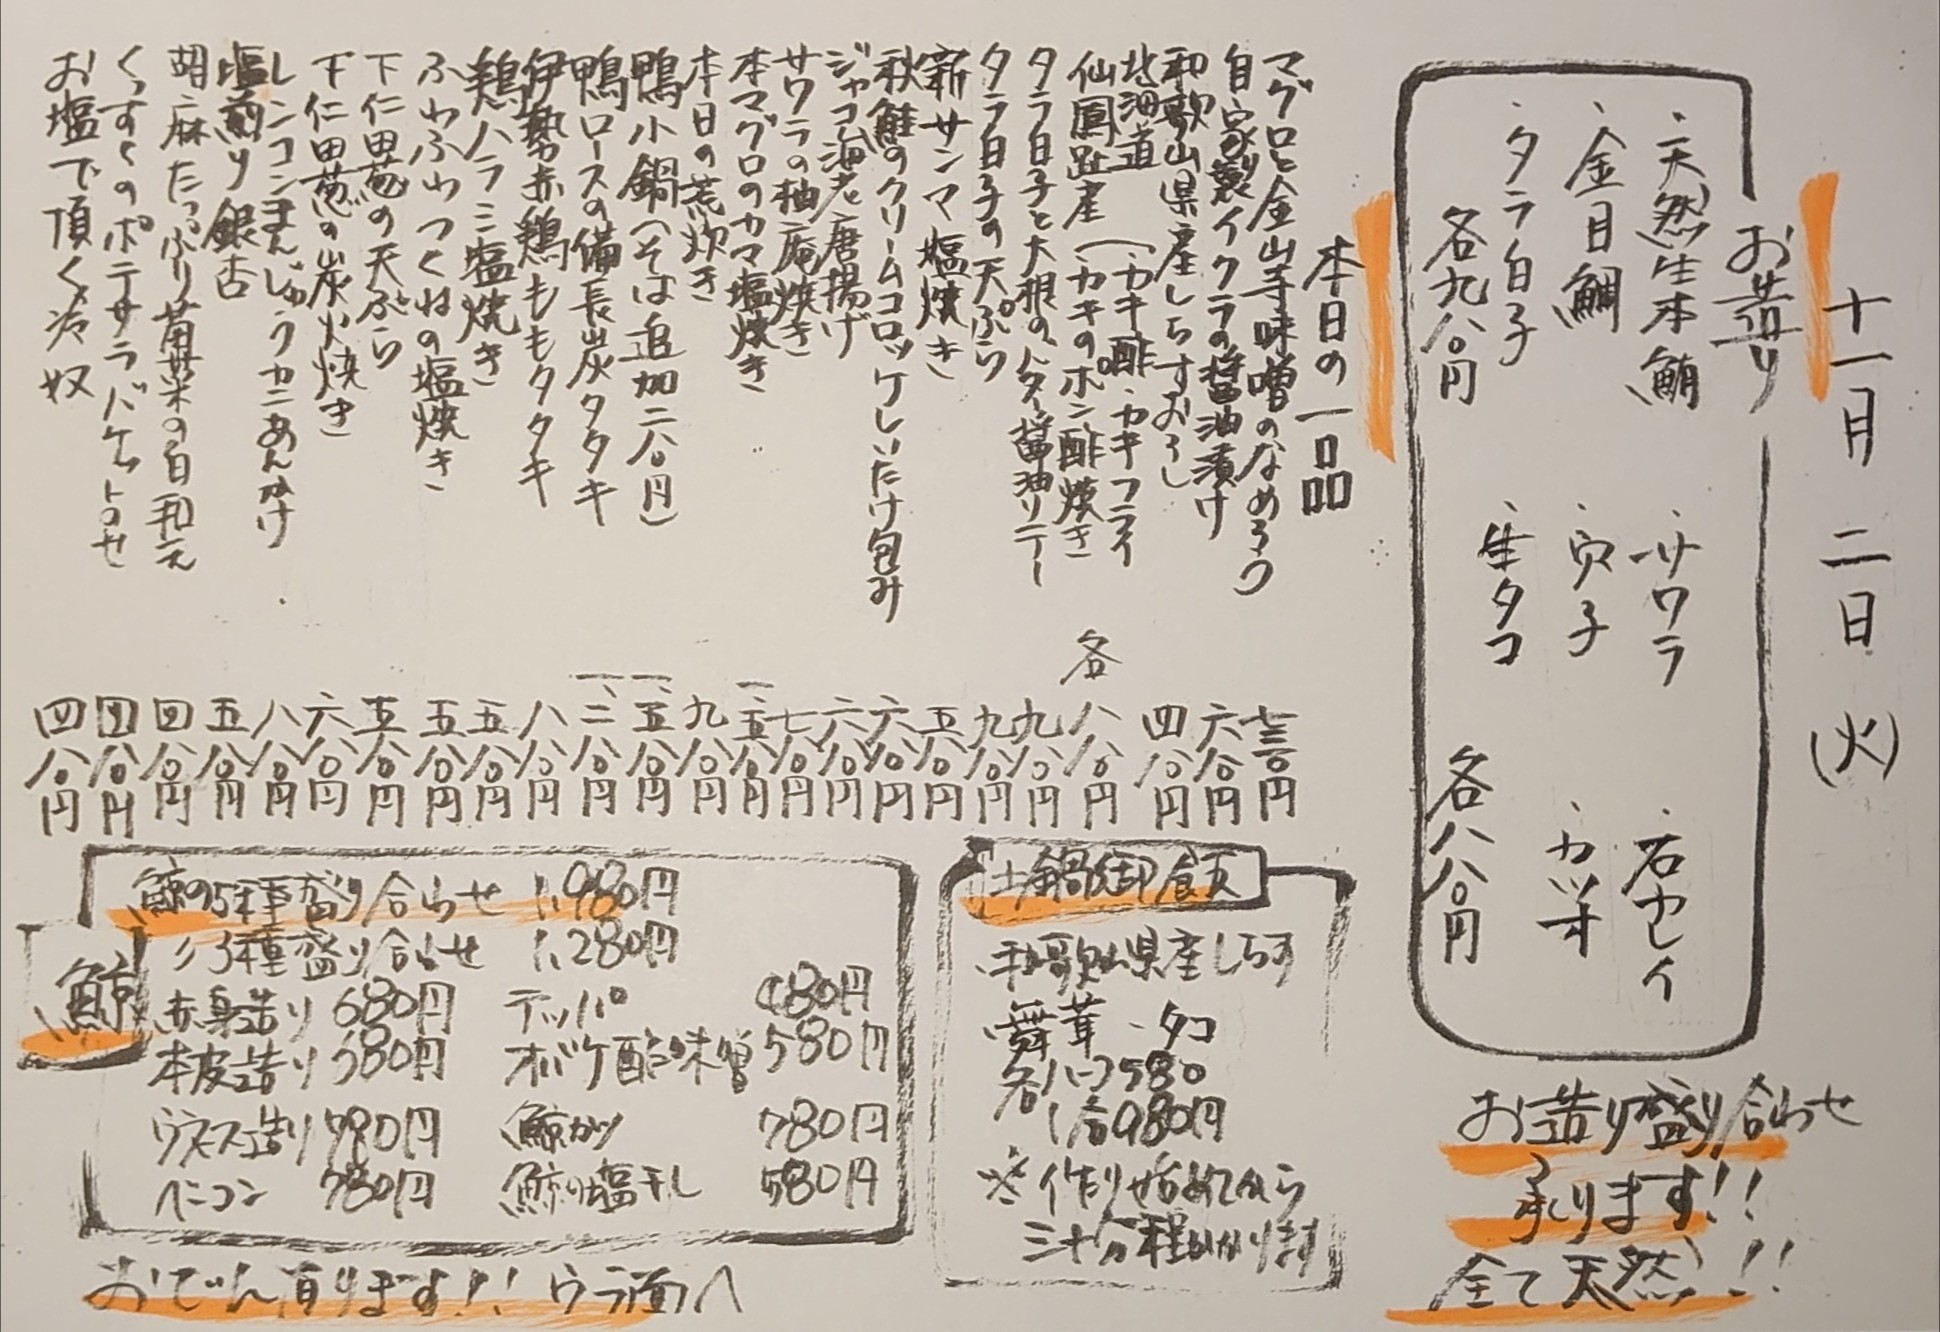 十一月二日(火)
お造り
・天然生本鮪
・サワラ
・石ガレイ
・金目鯛
・穴子
・カツオ
・タラ白子
・生タコ
各九八〇円
各八八〇円
お造り盛り合わせ
承ります!!
全て天然!!
本日の一品
マグロと金山寺味噌のなめろう 七三〇円
自家製イクラの醤油漬け 六八〇円
和歌山県産しらすおろし 四八〇円
北海道
仙鳳趾産
(カキ酢・カキフライ
(カキのポン酢焼き 各八八〇円
タラ白子と大根のバター醤油ソテー 九八〇円
タラ白子の天ぷら 九八〇円
新サンマ塩焼き 五八〇円
秋鮭のクリームコロッケしいたけ包み 六八〇円
ジャコ海老唐揚げ 六八〇円
サワラの柚庵焼き 七八〇円
本マグロのカマ塩焼き 一、五八〇円
本日の荒炊き 九八〇円
鴨小鍋(そば追加二八〇円) 一、五八〇円
鴨ロースの備長炭タタキ 一、二八〇円
伊勢赤鶏ももタタキ 八八〇円
鶏ハラミ塩焼き 五八〇円
ふわふわつくねの塩焼き 五八〇円
下仁田葱の天ぷら 五八〇円
下仁田葱の炭火焼き 六八〇円
レンコンまんじゅうカニあんかけ 八八〇円
塩煎り銀杏 五八〇円
胡麻たっぷり菊菜の白和え 四八〇円
くんすくのポテサラバケットのせ 四八〇円
お塩で頂く冷奴 四八〇円
土鍋御飯
・和歌山県産しらす
・舞茸 ・タコ
各ハーフ580
1合980円
※作り始めてから
三十分程かかります
鯨
鯨の5種盛り合わせ 1,980円
〃3種盛り合わせ 1,280円
赤身造り 680円
テッパ 480円
本皮造り 580円
オバケ酢味噌 580円
ウネス造り 780円
鯨カツ 780円
ベーコン 780円
鯨の塩干し 580円
おでん有ります!! ウラ面へ